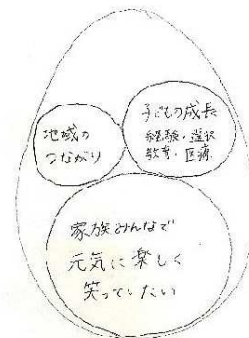 地域の
つながり
子どもの成長
経験・選択
教育・医療
家族みんなで
元気に楽しく
笑っていたい